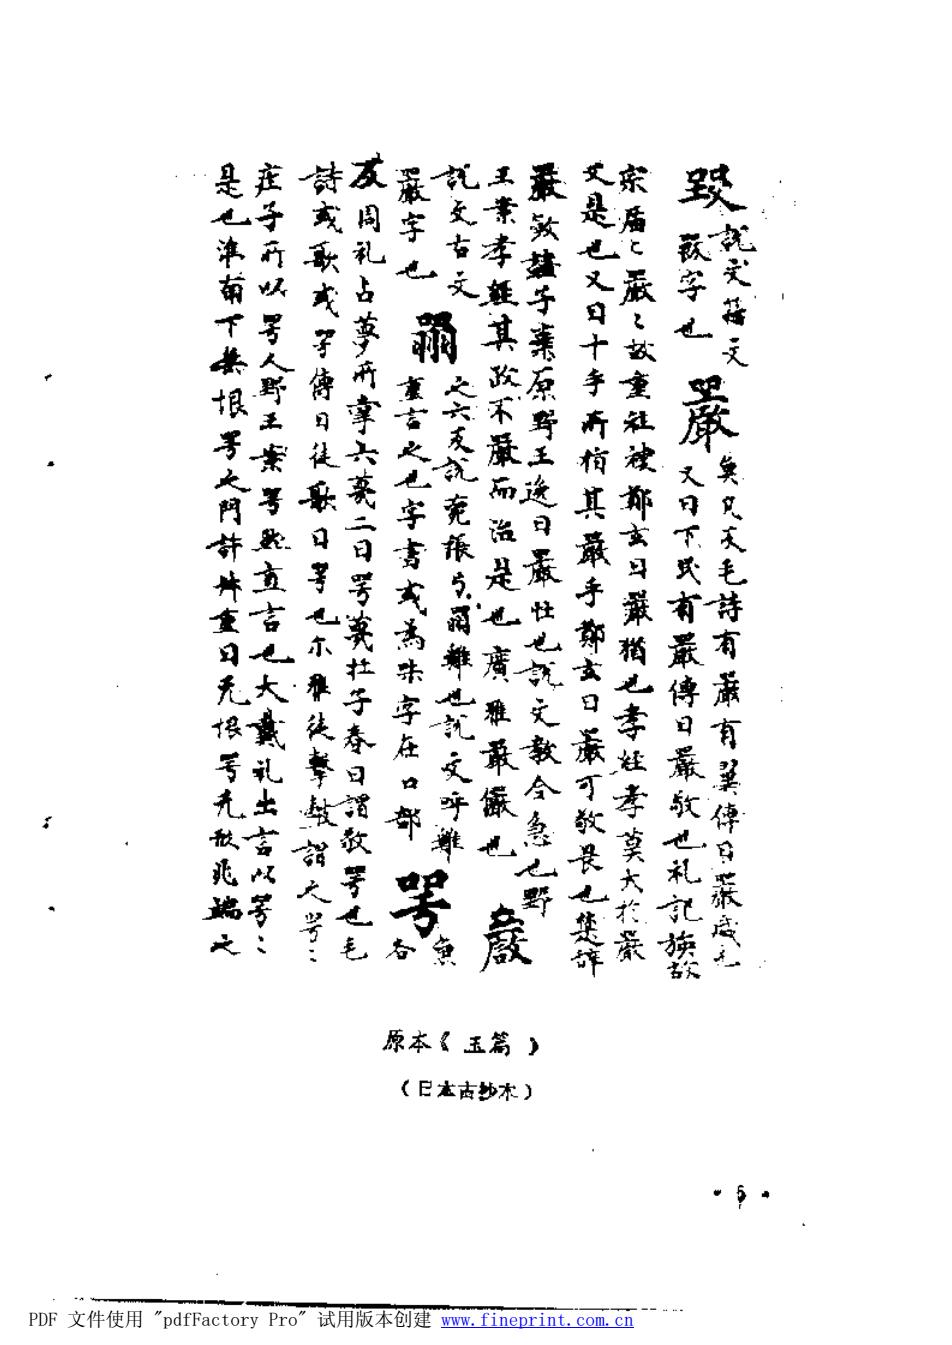 說文籀文
字也
嚴
魚凡反毛詩有嚴有翼傳曰嚴威也
又曰下民有嚴傳曰嚴敬也礼記族故
宗庿〻嚴〻故重社稷鄭玄曰嚴猶也孝経孝莫大於嚴
父是也又曰十手所指其嚴手鄭玄曰嚴可敬畏也楚辝
嚴敘諸子棄原野王逸曰嚴壮也說文教令急也野
王案孝経其政不嚴而治是也廣雅嚴儼也
說文古文
嚴字也
之六反說文呼雞
重言之也字書或為咮字在口部
咢
魚各
反周礼占夢所掌六夢二曰咢夢杜子春曰謂敬咢也毛
詩或歌或咢傳曰徒歌曰咢也尓雅徒擊鼓謂之咢〻
庄子所以咢人野王案咢然直言也大戴礼出言以咢〻
是也淮南下無垠咢之門許重曰无垠咢无形兆端之
原本《玉篇》
(日本古抄本)
• 5 •
PDF 文件使用 "pdfFactory Pro" 试用版本创建 www.fineprint.com.cn